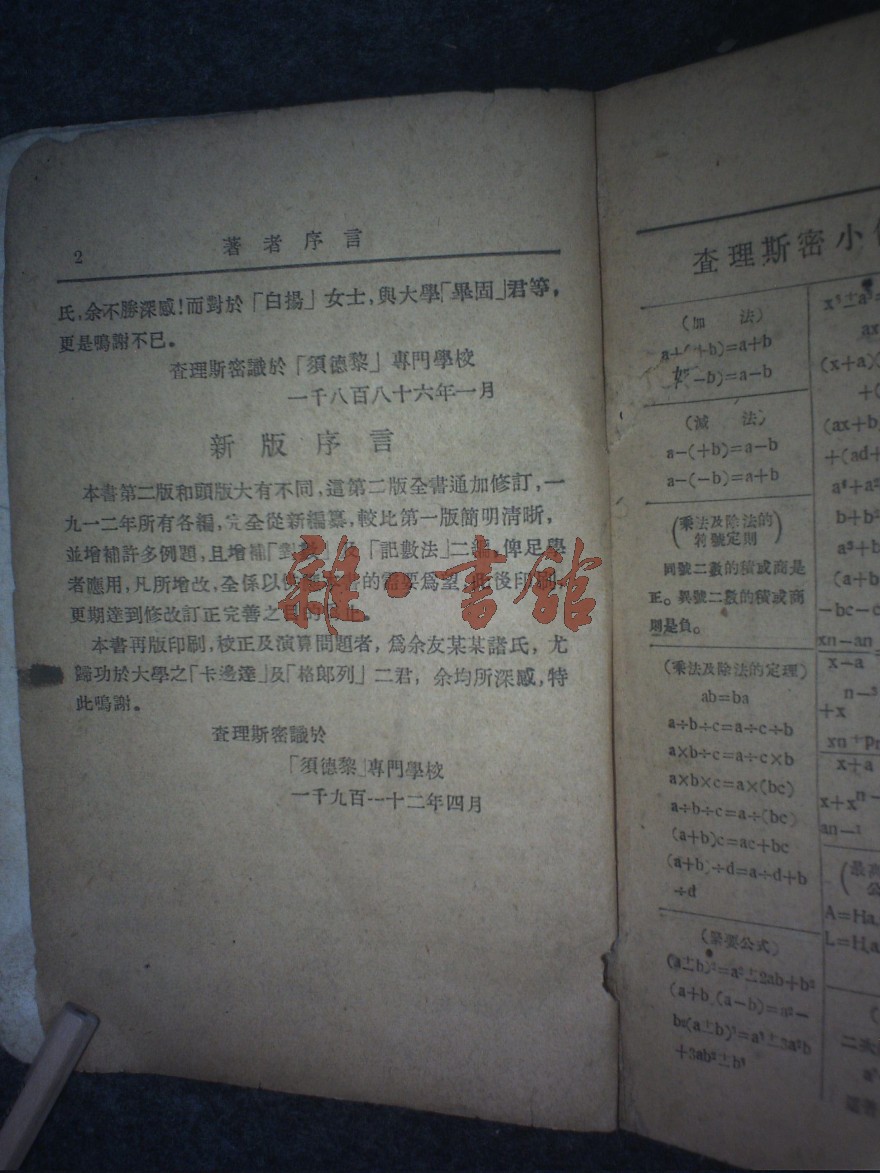 2
著者序言
氏,余不勝深感!而對於「白揚」女士,與大學「畢固」君等,
更是鳴謝不已。
查理斯密識於「須德黎」專門學校
一千八百八十六年一月
新版序言
本書第二版和頭版大有不同,這第二版全書通加修訂,一
九一二年所有各編,完全從新編纂,較比第一版簡明清晰,
並增補許多例題,且增補「對數」及「記數法」二編,俾足學
者應用,凡所增改,全係以 的需要爲望,此後印刷,
更期達到修改訂正完善之目的 止。
本書再版印刷,校正及演算問題者,爲余友某某諸氏,尤
歸功於大學之「卡邊達」及「格郎列」二君,余均所深感,特
此鳴謝。
查理斯密識於
「須德黎」專門學校
一千九百一十二年四月
雜·書館
查理斯密小
(加 法)
a+(+b)=a+b
-b)=a-b
(減 法)
a-(+b)=a-b
a-(-b)=a+b
(乘法及除法的
符號定則)
同號二數的積或商是
正。異號二數的積或商
則是負。
(乘法及除法的定理)
ab=ba
a÷b÷c=a÷c÷b
a×b÷c=a÷c×b
a×b×c=a×(bc)
a÷b÷c=a÷(bc)
(a+b)c=ac+bc
(a+b)÷d=a÷d+b
÷d
(緊要公式)
(a±b)²=a²±2ab+b²
(a+b)(a-b)=a²-
b²(a±b)³=a³±3a²b
+3ab²±b³
x³±a³=
ax
(x+a)(
+(
(ax+b
+(ad+
a³+a²
b+b²
a³+b
(a+b
-bc-c
xn-an
x-a
n-³
+x
x+a
x+xn-
an-¹
(最高
公
A=Ha
L=Ha
二次
a²